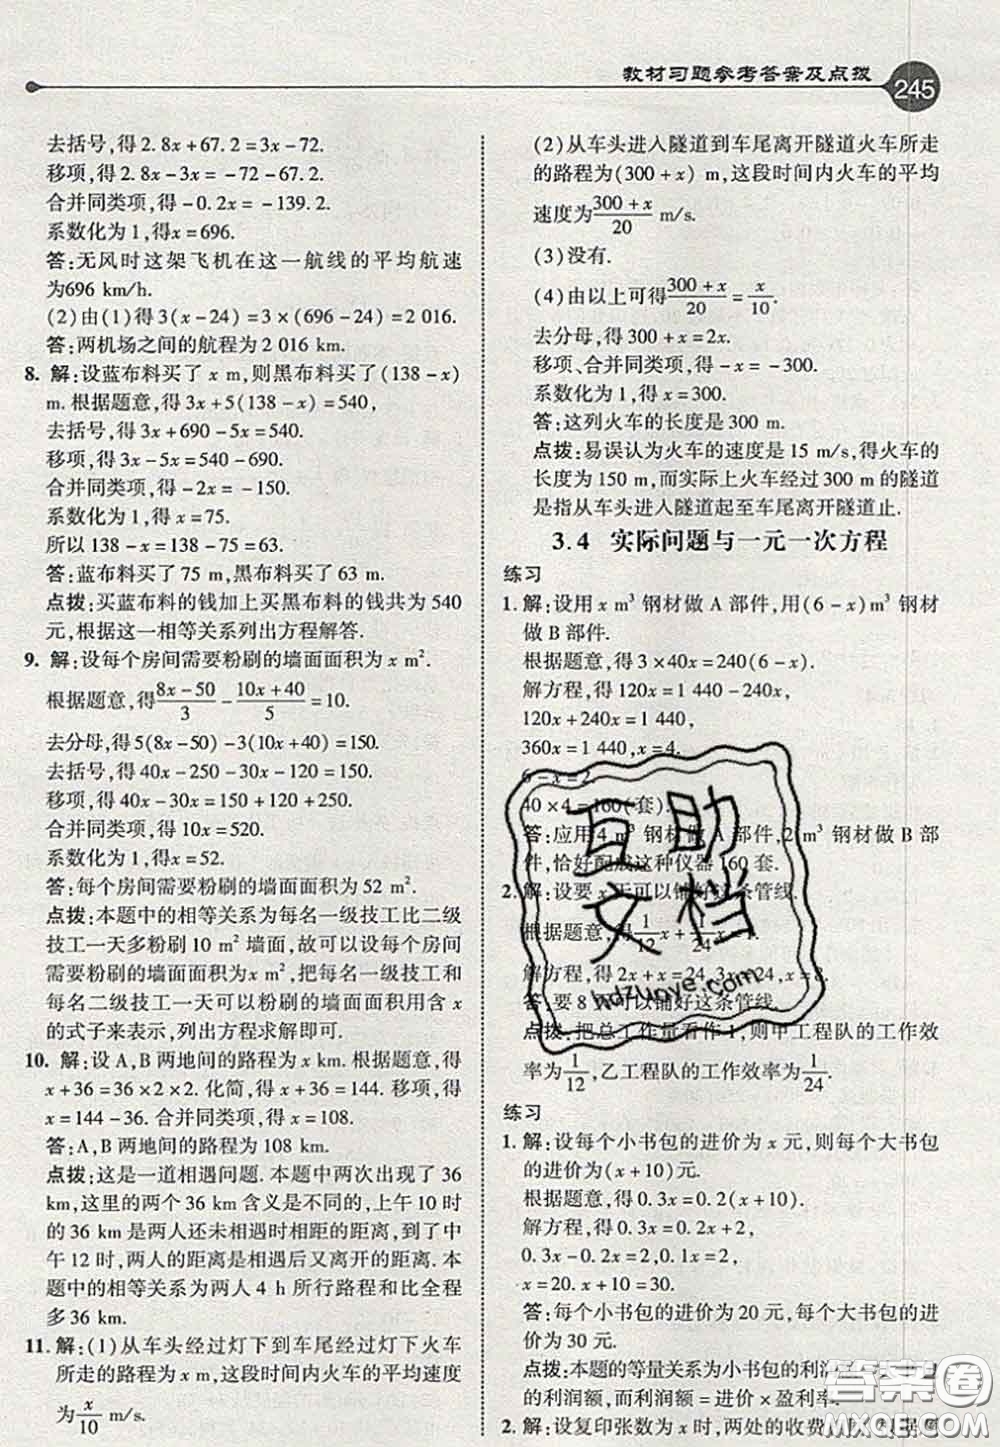 教材习题参考答案及点拨
245
去括号,得2.8x+67.2=3x-72.
移项,得2.8x-3x=-72-67.2.
合并同类项,得-0.2x=-139.2.
系数化为1,得x=696.
答:无风时这架飞机在这一航线的平均航速
为696 km/h.
(2)由(1)得3(x-24)=3×(696-24)=2 016.
答:两机场之间的航程为2 016 km.
8. 解:设蓝布料买了x m,则黑布料买了(138-x)
m.根据题意,得3x+5(138-x)=540,
去括号,得3x+690-5x=540.
移项,得3x-5x=540-690.
合并同类项,得-2x=-150.
系数化为1,得x=75.
所以138-x=138-75=63.
答:蓝布料买了75 m,黑布料买了63 m.
点拨:买蓝布料的钱加上买黑布料的钱共为540
元,根据这一相等关系列出方程解答.
9. 解:设每个房间需要粉刷的墙面面积为x m².
根据题意,得(8x-50)/3-(10x+40)/5=10.
去分母,得5(8x-50)-3(10x+40)=150.
去括号,得40x-250-30x-120=150.
移项,得40x-30x=150+120+250.
合并同类项,得10x=520.
系数化为1,得x=52.
答:每个房间需要粉刷的墙面面积为52 m².
点拨:本题中的相等关系为每名一级技工比二级
技工一天多粉刷10 m²墙面,故可以设每个房间
需要粉刷的墙面面积为x m²,把每名一级技工和
每名二级技工一天可以粉刷的墙面面积用含x
的式子来表示,列出方程求解即可.
10. 解:设A,B两地间的路程为x km.根据题意,得
x+36=36×2×2.化简,得x+36=144.移项,得
x=144-36.合并同类项,得x=108.
答:A,B两地间的路程为108 km.
点拨:这是一道相遇问题.本题中两次出现了36
km,这里的两个36 km含义是不同的,上午10时
的36 km是两人还未相遇时相距的距离,到了中
午12时,两人的距离是相遇后又离开的距离.本
题中的相等关系为两人4 h所行路程和比全程
多36 km.
11. 解:(1)从车头经过灯下到车尾经过灯下火车
所走的路程为x m,这段时间内火车的平均速度
为x/10 m/s.
(2)从车头进入隧道到车尾离开隧道火车所走
的路程为(300+x) m,这段时间内火车的平均
速度为(300+x)/20 m/s.
(3)没有.
(4)由以上可得(300+x)/20=x/10.
去分母,得300+x=2x.
移项、合并同类项,得-x=-300.
系数化为1,得x=300.
答:这列火车的长度是300 m.
点拨:易误认为火车的速度是15 m/s,得火车的
长度为150 m,而实际上火车经过300 m的隧道
是指从车头进入隧道起至车尾离开隧道止.
3.4 实际问题与一元一次方程
练习
1. 解:设用x m³钢材做A部件,用(6-x)m³钢材
做B部件.
根据题意,得3×40x=240(6-x).
解方程,得120x=1 440-240x,
120x+240x=1 440,
360x=1 440,x=4.
6-x=2.
40×4=160(套).
答:应用4 m³钢材做A部件,2 m³钢材做B部
件,恰好配成这种仪器160套.
2. 解:设要x天可以铺好这条管线.
根据题意,得1/12x+1/24x=1.
解方程,得2x+x=24,3x=24,x=8.
答:要8天可以铺好这条管线.
点拨:把总工作量看作1,则甲工程队的工作效
率为1/12,乙工程队的工作效率为1/24.
练习
1. 解:设每个小书包的进价为x元,则每个大书包
的进价为(x+10)元.
根据题意,得0.3x=0.2(x+10).
解方程,得0.3x=0.2x+2,
0.3x-0.2x=2,0.1x=2,
x=20.x+10=30.
答:每个小书包的进价为20元,每个大书包的进价
为30元.
点拨:本题的等量关系为小书包的利润额=大书包
的利润额,而利润额=进价×盈利率.
2. 解:设复印张数为x时,两处的收费
互助
文档
hdzuoye.com
答案圈
MXQE.COM